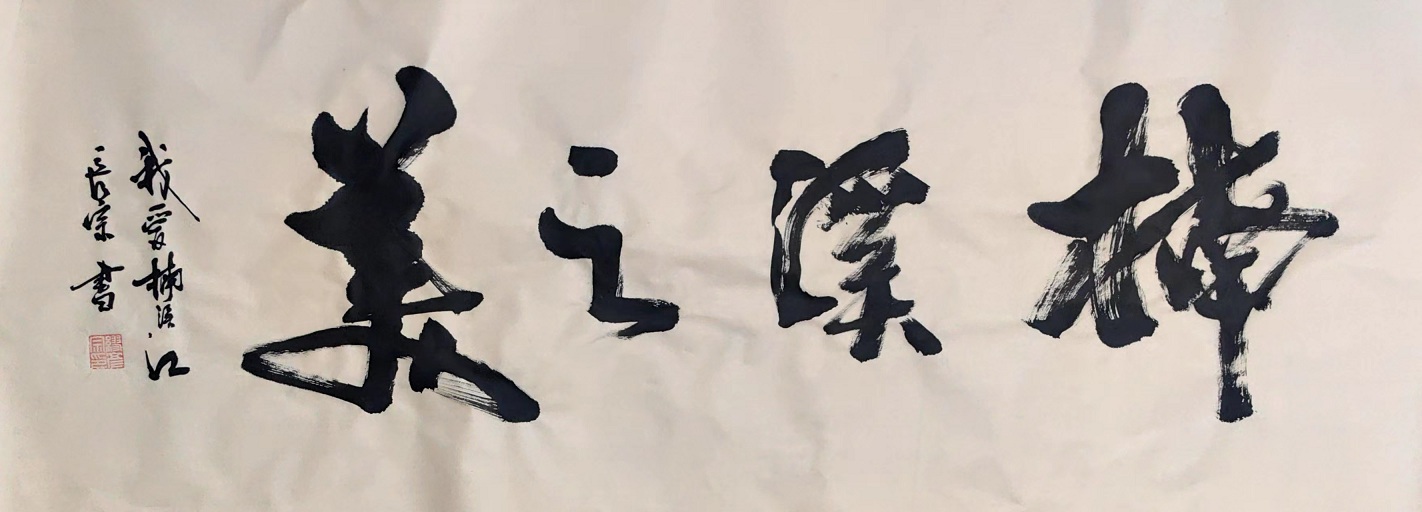 楠溪之美
我爱楠溪江
长宗书